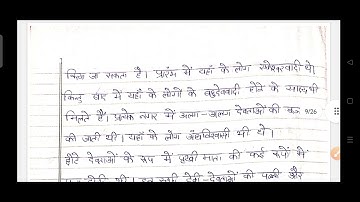 किया जा सकता है। प्रारंभ में यहाँ के लोग एकेश्वरवादी थे।
किन्तु बाद में यहाँ के लोगों के बहुदेववादी होने के साक्ष्य भी
मिलते हैं। प्रत्येक नगर में अलग-अलग देवताओं की पूजा 9/26
की जाती थी। यहाँ के लोग अंधविश्वासी भी थे।
छोटे देवताओं के रूप में पृथ्वी माता की कई रूपों में
देवी-देवताओं की पत्नी और